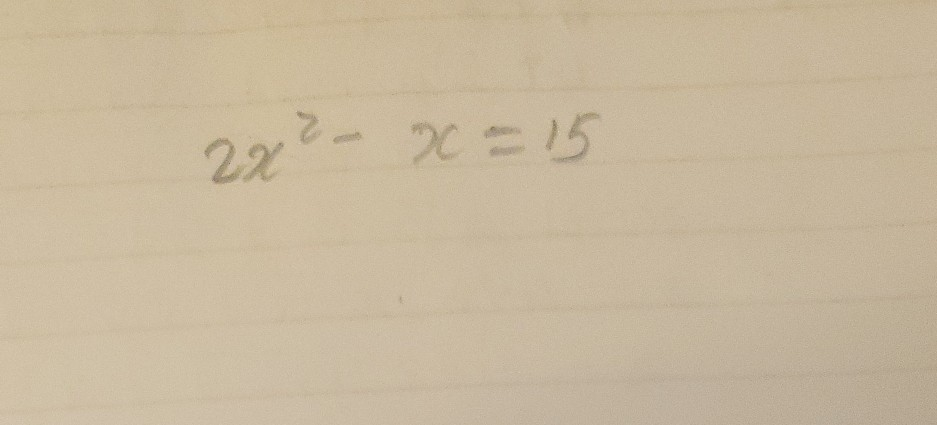 2x² - x = 15